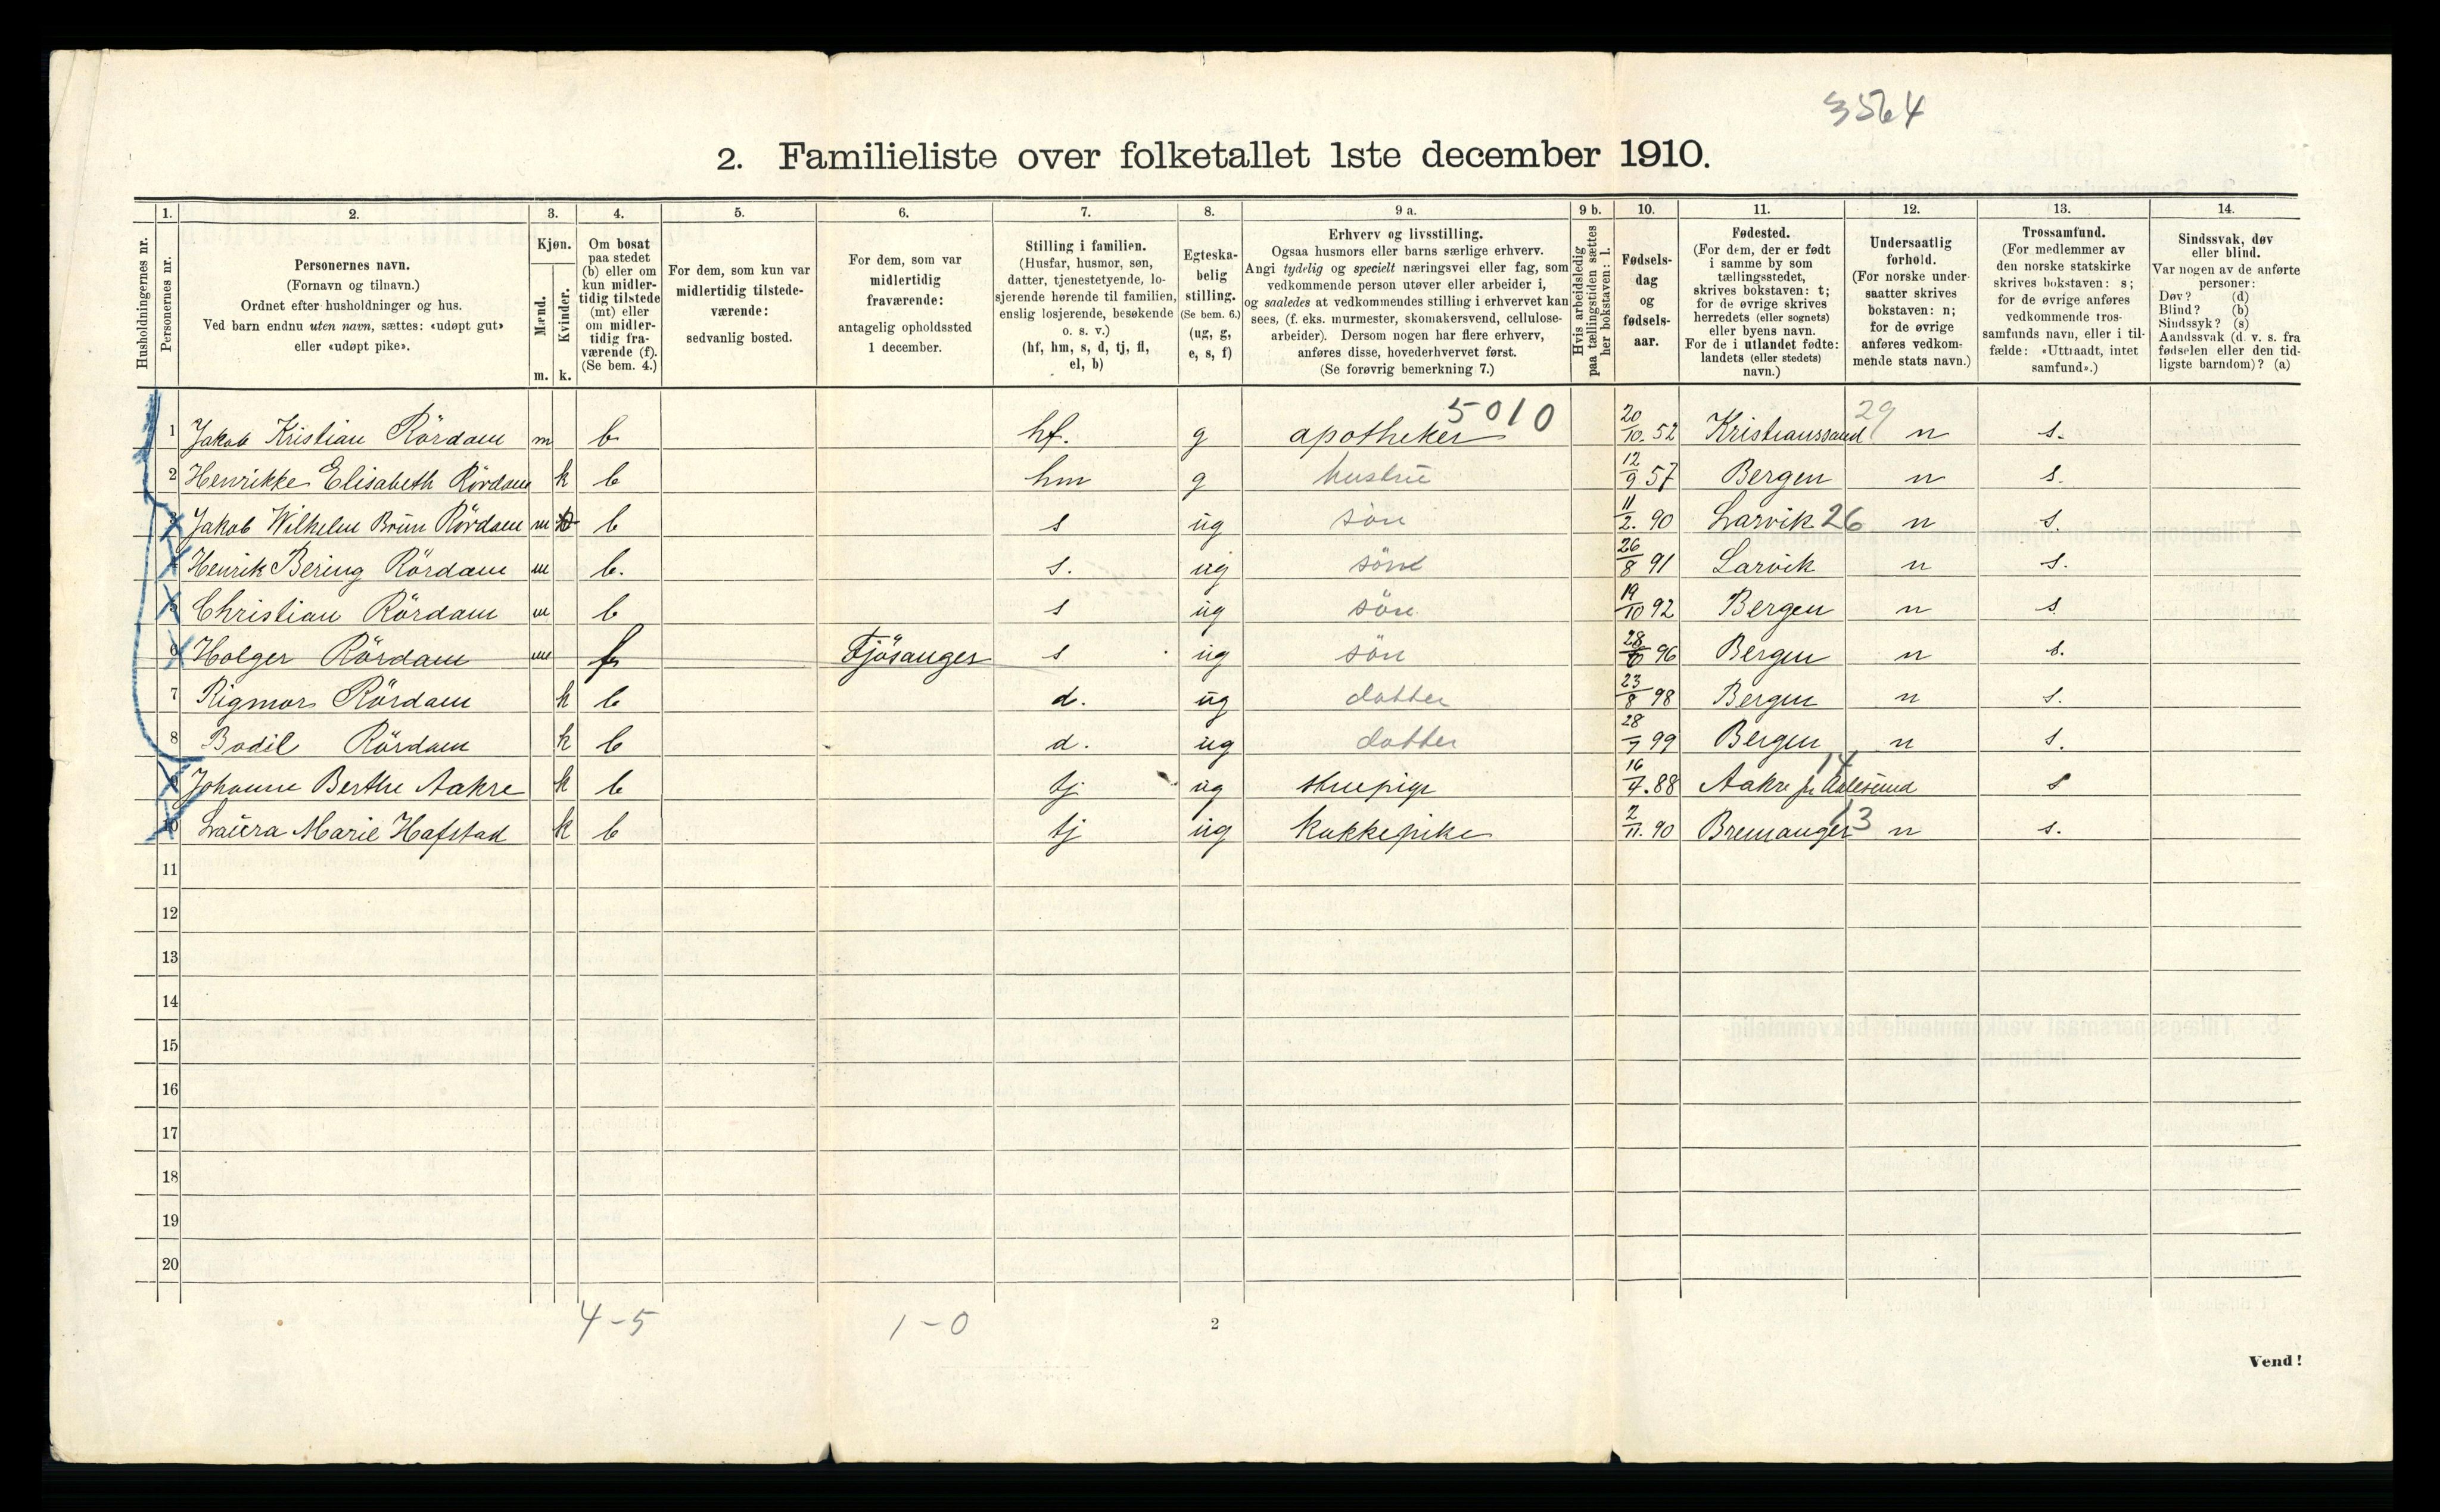 3564
2. Familieliste over folketallet 1ste december 1910.
1. 2. 3. 4. 5. 6. 7. 8. 9 a. 9 b. 10. 11. 12. 13. 14.
Husholdningernes nr.
Personernes nr.
Personernes navn.
(Fornavn og tilnavn.)
Ordnet efter husholdninger og hus.
Ved barn endnu uten navn, sættes: «udøpt gut»
eller «udøpt pike».
Kjøn.
Mænd.
Kvinder.
m. k.
Om bosat
paa stedet
(b) eller om
kun midler-
tidig tilstede
(mt) eller
om midler-
tidig fra-
værende (f).
(Se bem. 4.)
For dem, som kun var
midlertidig tilstede-
værende:
sedvanlig bosted.
For dem, som var
midlertidig
fraværende:
antagelig opholdssted
1 december.
Stilling i familien.
(Husfar, husmor, søn,
datter, tjenestetyende, lo-
sjerende hørende til familien,
enslig losjerende, besøkende
o. s. v.)
(hf, hm, s, d, tj, fl,
el, b)
Egteska-
belig
stilling.
(Se bem. 6.)
(ug, g,
e, s, f)
Erhverv og livsstilling.
Ogsaa husmors eller barns særlige erhverv.
Angi tydelig og specielt næringsvei eller fag, som
vedkommende person utøver eller arbeider i,
og saaledes at vedkommendes stilling i erhvervet kan
sees, (f. eks. murmester, skomakersvend, cellulose-
arbeider). Dersom nogen har flere erhverv,
anføres disse, hovederhvervet først.
(Se forøvrig bemerkning 7.)
Hvis arbeidsledig
paa tællingstiden sættes
her bokstaven: l.
Fødsels-
dag
og
fødsels-
aar.
Fødested.
(For dem, der er født
i samme by som
tællingsstedet,
skrives bokstaven: t;
for de øvrige skrives
herredets (eller sognets)
eller byens navn.
For de i utlandet fødte:
landets (eller stedets)
navn.)
Undersaatlig
forhold.
(For norske under-
saatter skrives
bokstaven: n;
for de øvrige
anføres vedkom-
mende stats navn.)
Trossamfund.
(For medlemmer av
den norske statskirke
skrives bokstaven: s;
for de øvrige anføres
vedkommende tros-
samfunds navn, eller i til-
fælde: «Uttraadt, intet
samfund».)
Sindssvak, døv
eller blind.
Var nogen av de anførte
personer:
Døv? (d)
Blind? (b)
Sindssyk? (s)
Aandssvak (d. v. s. fra
fødselen eller den tid-
ligste barndom)? (a)
5010 29
1 Jakob Kristian Rördam m b hf. g apotheker 20/10. 52 Kristianssand n s.
2 Henrikke Elisabeth Rördam k b hm g hustru 12/9 57 Bergen n s.
3 Jakob Wilhelm Brün Rördam m b s ug sön 11/2. 90 Larvik 26 n s.
4 Henrik Bering Rördam m b. s. ug sön 26/8 91 Larvik n s.
5 Christian Rördam m b s ug sön 19/10 92 Bergen n s
6 Holger Rördam m f Fjösanger s ug sön 96 Bergen n s.
7 Rigmor Rördam k b d. ug datter 23/8 98 Bergen n s.
8 Bodil Rördam k b d. ug datter 28/7 99 Bergen n s.
9 Johanne Berthe Aakre k b tj ug stuepige 16/4. 88 Aakre pr Aalesund 14 s
10 Laura Marie Hafstad k b tj ug kokkepike 2/11. 90 Bremanger 13 n s.
11
12
13
14
15
16
17
18
19
20
4-5 1-0
2
Vend!